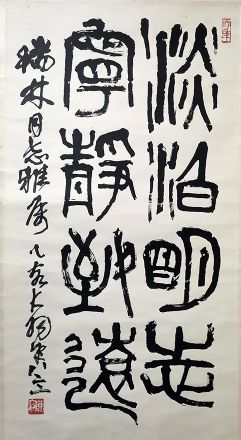 淡泊明志
寧靜致遠
瑞林同志雅屬
乙亥